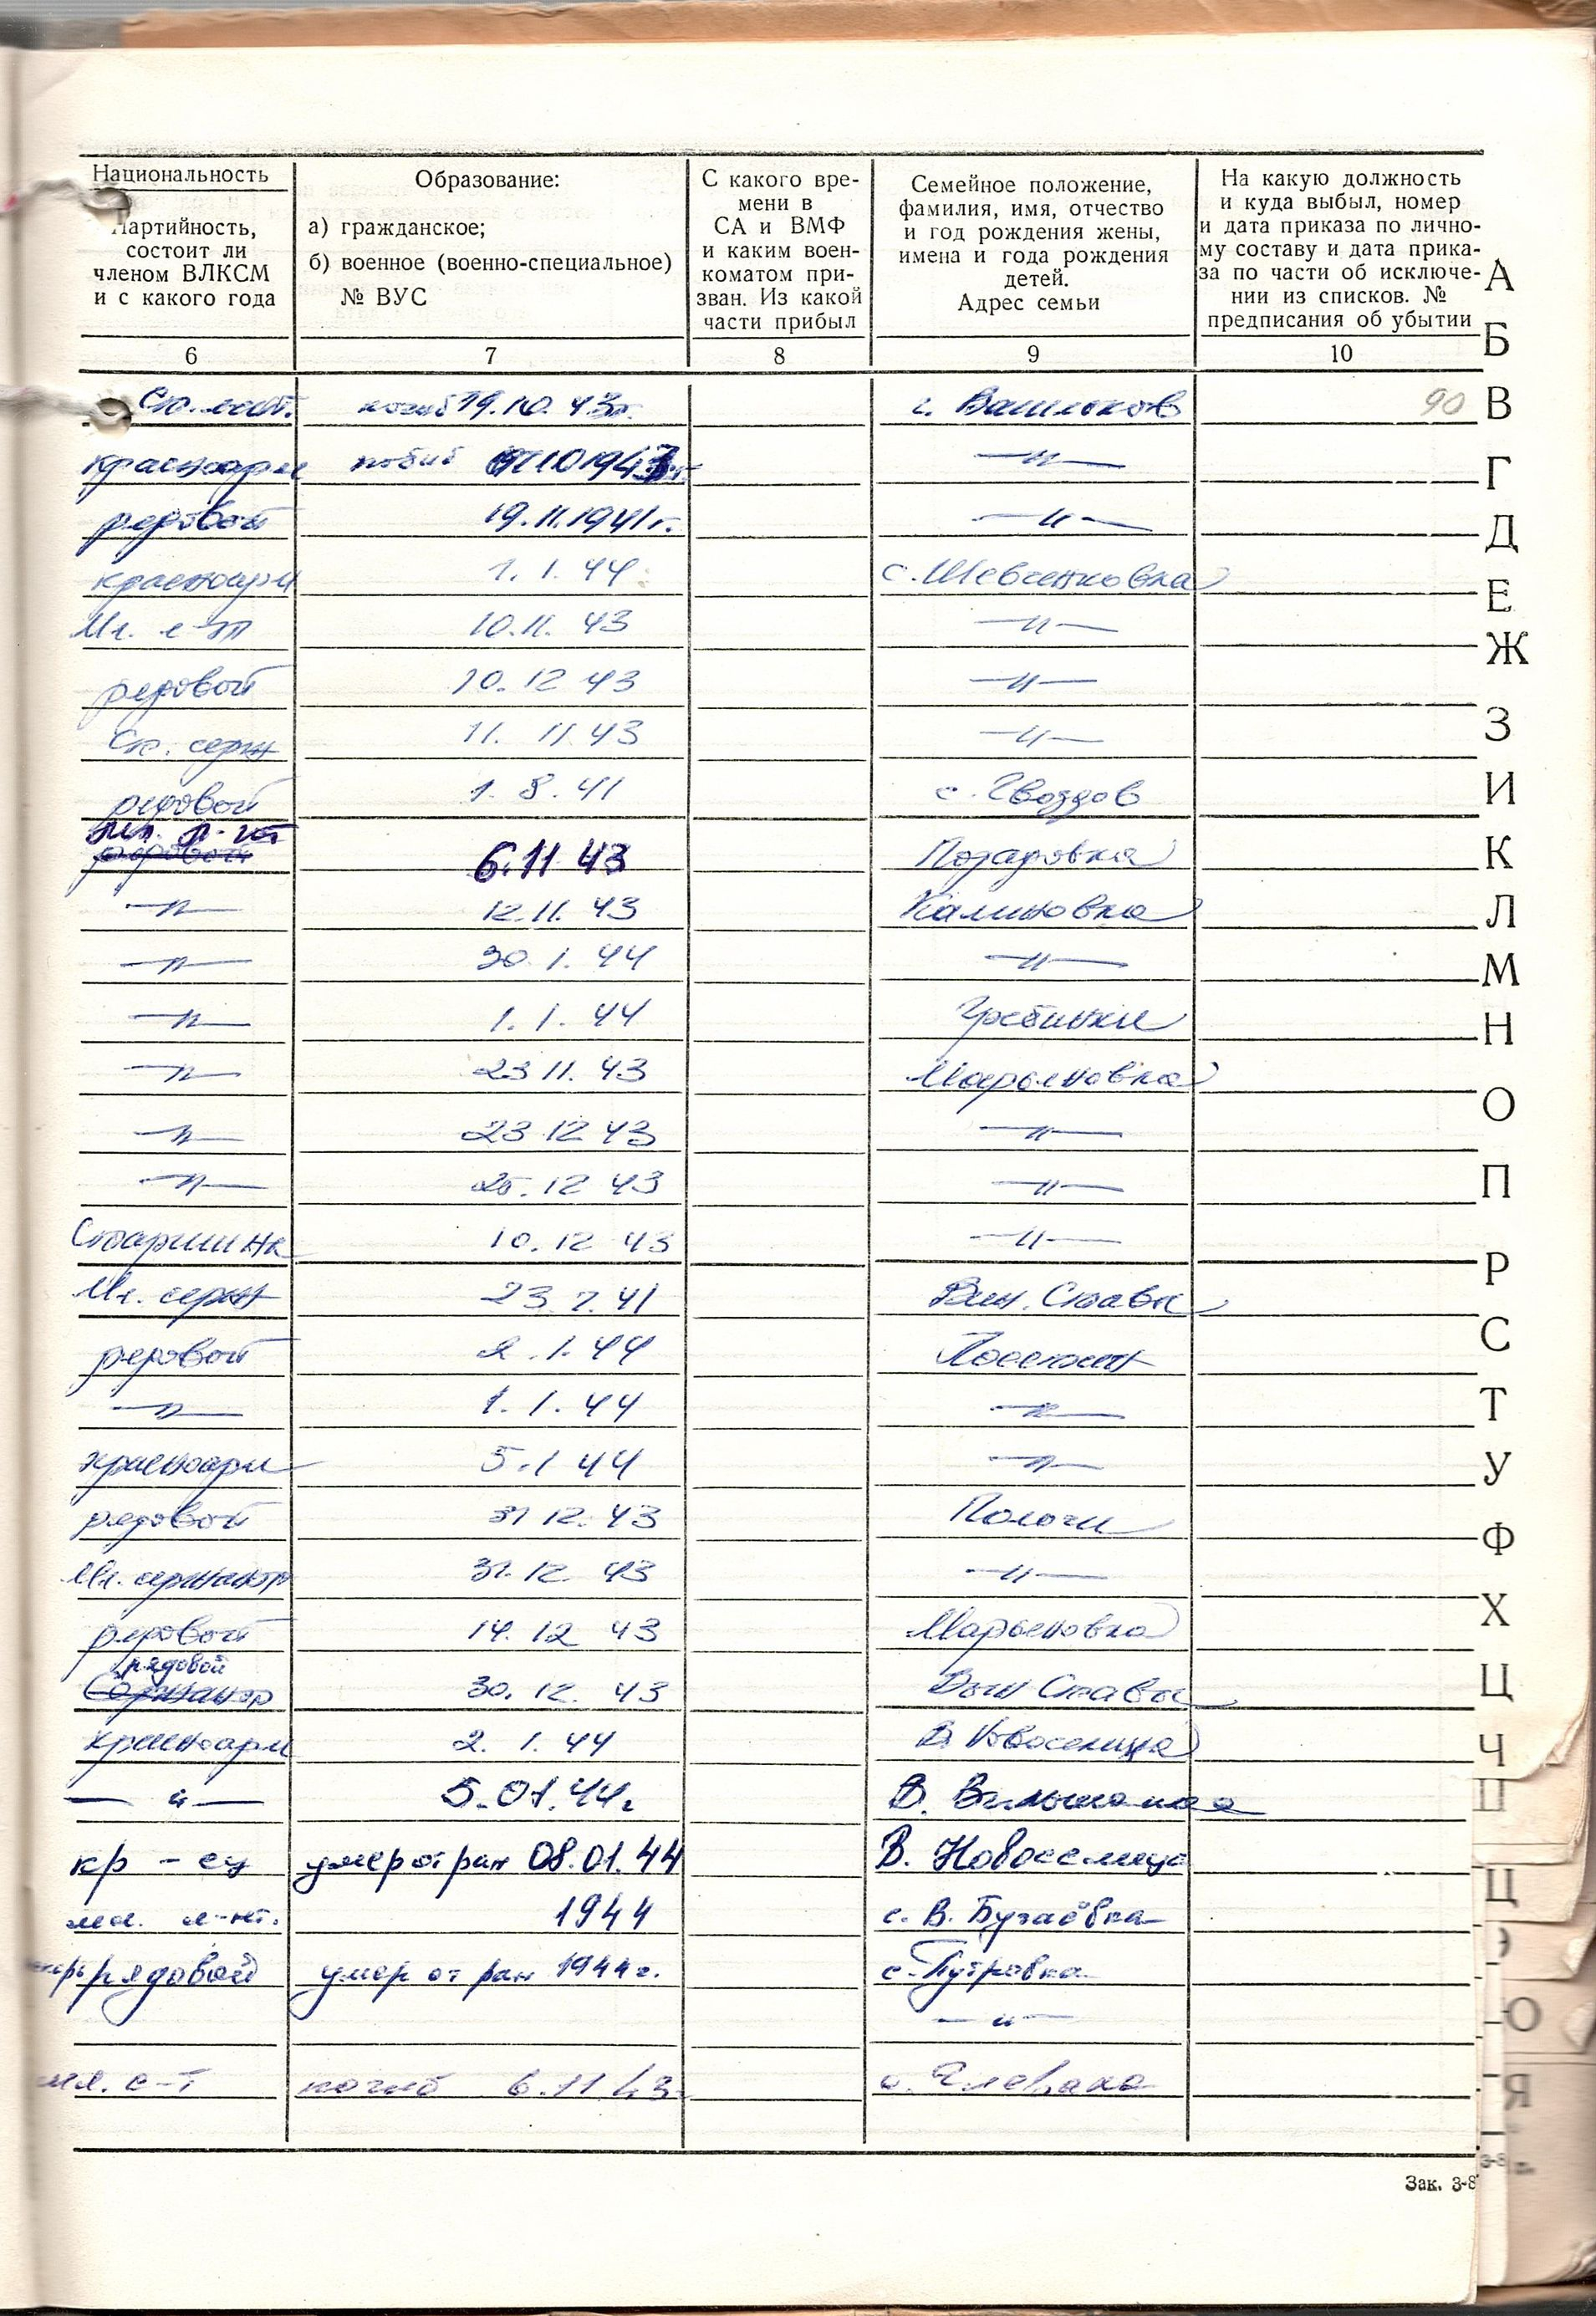 Национальность
Партийность,
состоит ли
членом ВЛКСМ
и с какого года
Образование:
а) гражданское;
б) военное (военно-специальное)
№ ВУС
С какого вре-
мени в
СА и ВМФ
и каким воен-
коматом при-
зван. Из какой
части прибыл
Семейное положение,
фамилия, имя, отчество
и год рождения жены,
имена и года рождения
детей.
Адрес семьи
На какую должность
и куда выбыл, номер
и дата приказа по лично-
му составу и дата прика-
за по части об исключе-
нии из списков. №
предписания об убытии
6 7 8 9 10
погиб 19.10.43г. г. Васильков 90
красноарм погиб —"—
рядовой 19.11.1941г. —"—
красноарм 1.1.44 с. Шевченковка
Мл. л-т 10.11.43 —"—
рядовой 10.12 43 —"—
Ст. серж 11.11 43 —"—
рядовой 1.8.41 с. Гвоздов
мл. л-нт 6.11 43
—"— 12.11.43 Калиновка
—"— 30.1.44 —"—
—"— 1.1.44 Гребинки
—"— 23 11.43 Марьяновка
—"— 23 12 43 —"—
—"— 25.12 43 —"—
Старшина 10.12 43 —"—
Мл. серж 23.7.41 Ставы
рядовой 2.1.44
—"— 1.1.44 —"—
красноарм 5.1 44 —"—
рядовой 31 12.43 Пологи
Мл. сержант 31.12 43 —"—
рядовой 14.12 43 Марьяновка
рядовой
Сержант 30.12.43 Ставы
красноарм 2.1.44 В Новоселица
— " — 5.01.44г В.
кр-ец умер от ран 08.01.44 В. Новоселица
мл. л-нт. 1944 с. В. Бугаёвка
рядовой умер от ран 1944г. с. Путровка
—"—
мл. с-т погиб 6.11 43 с.
А
Б
В
Г
Д
Е
Ж
З
И
К
Л
М
Н
О
П
Р
С
Т
У
Ф
Х
Ц
Ч
Ш
Ц
Э
Ю
Я
Зак. 3-8